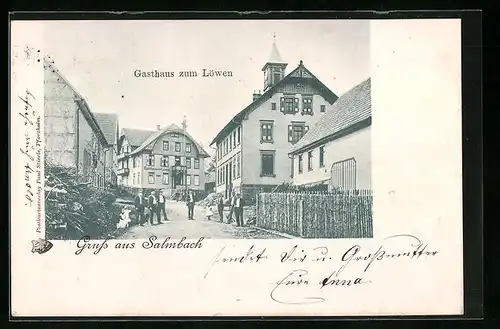 Gasthaus zum Löwen
Postkartenverlag Paul Stierle, Pforzheim.
Gruß aus Salmbach
sendet Dir u Großmutter
Eure Anna.